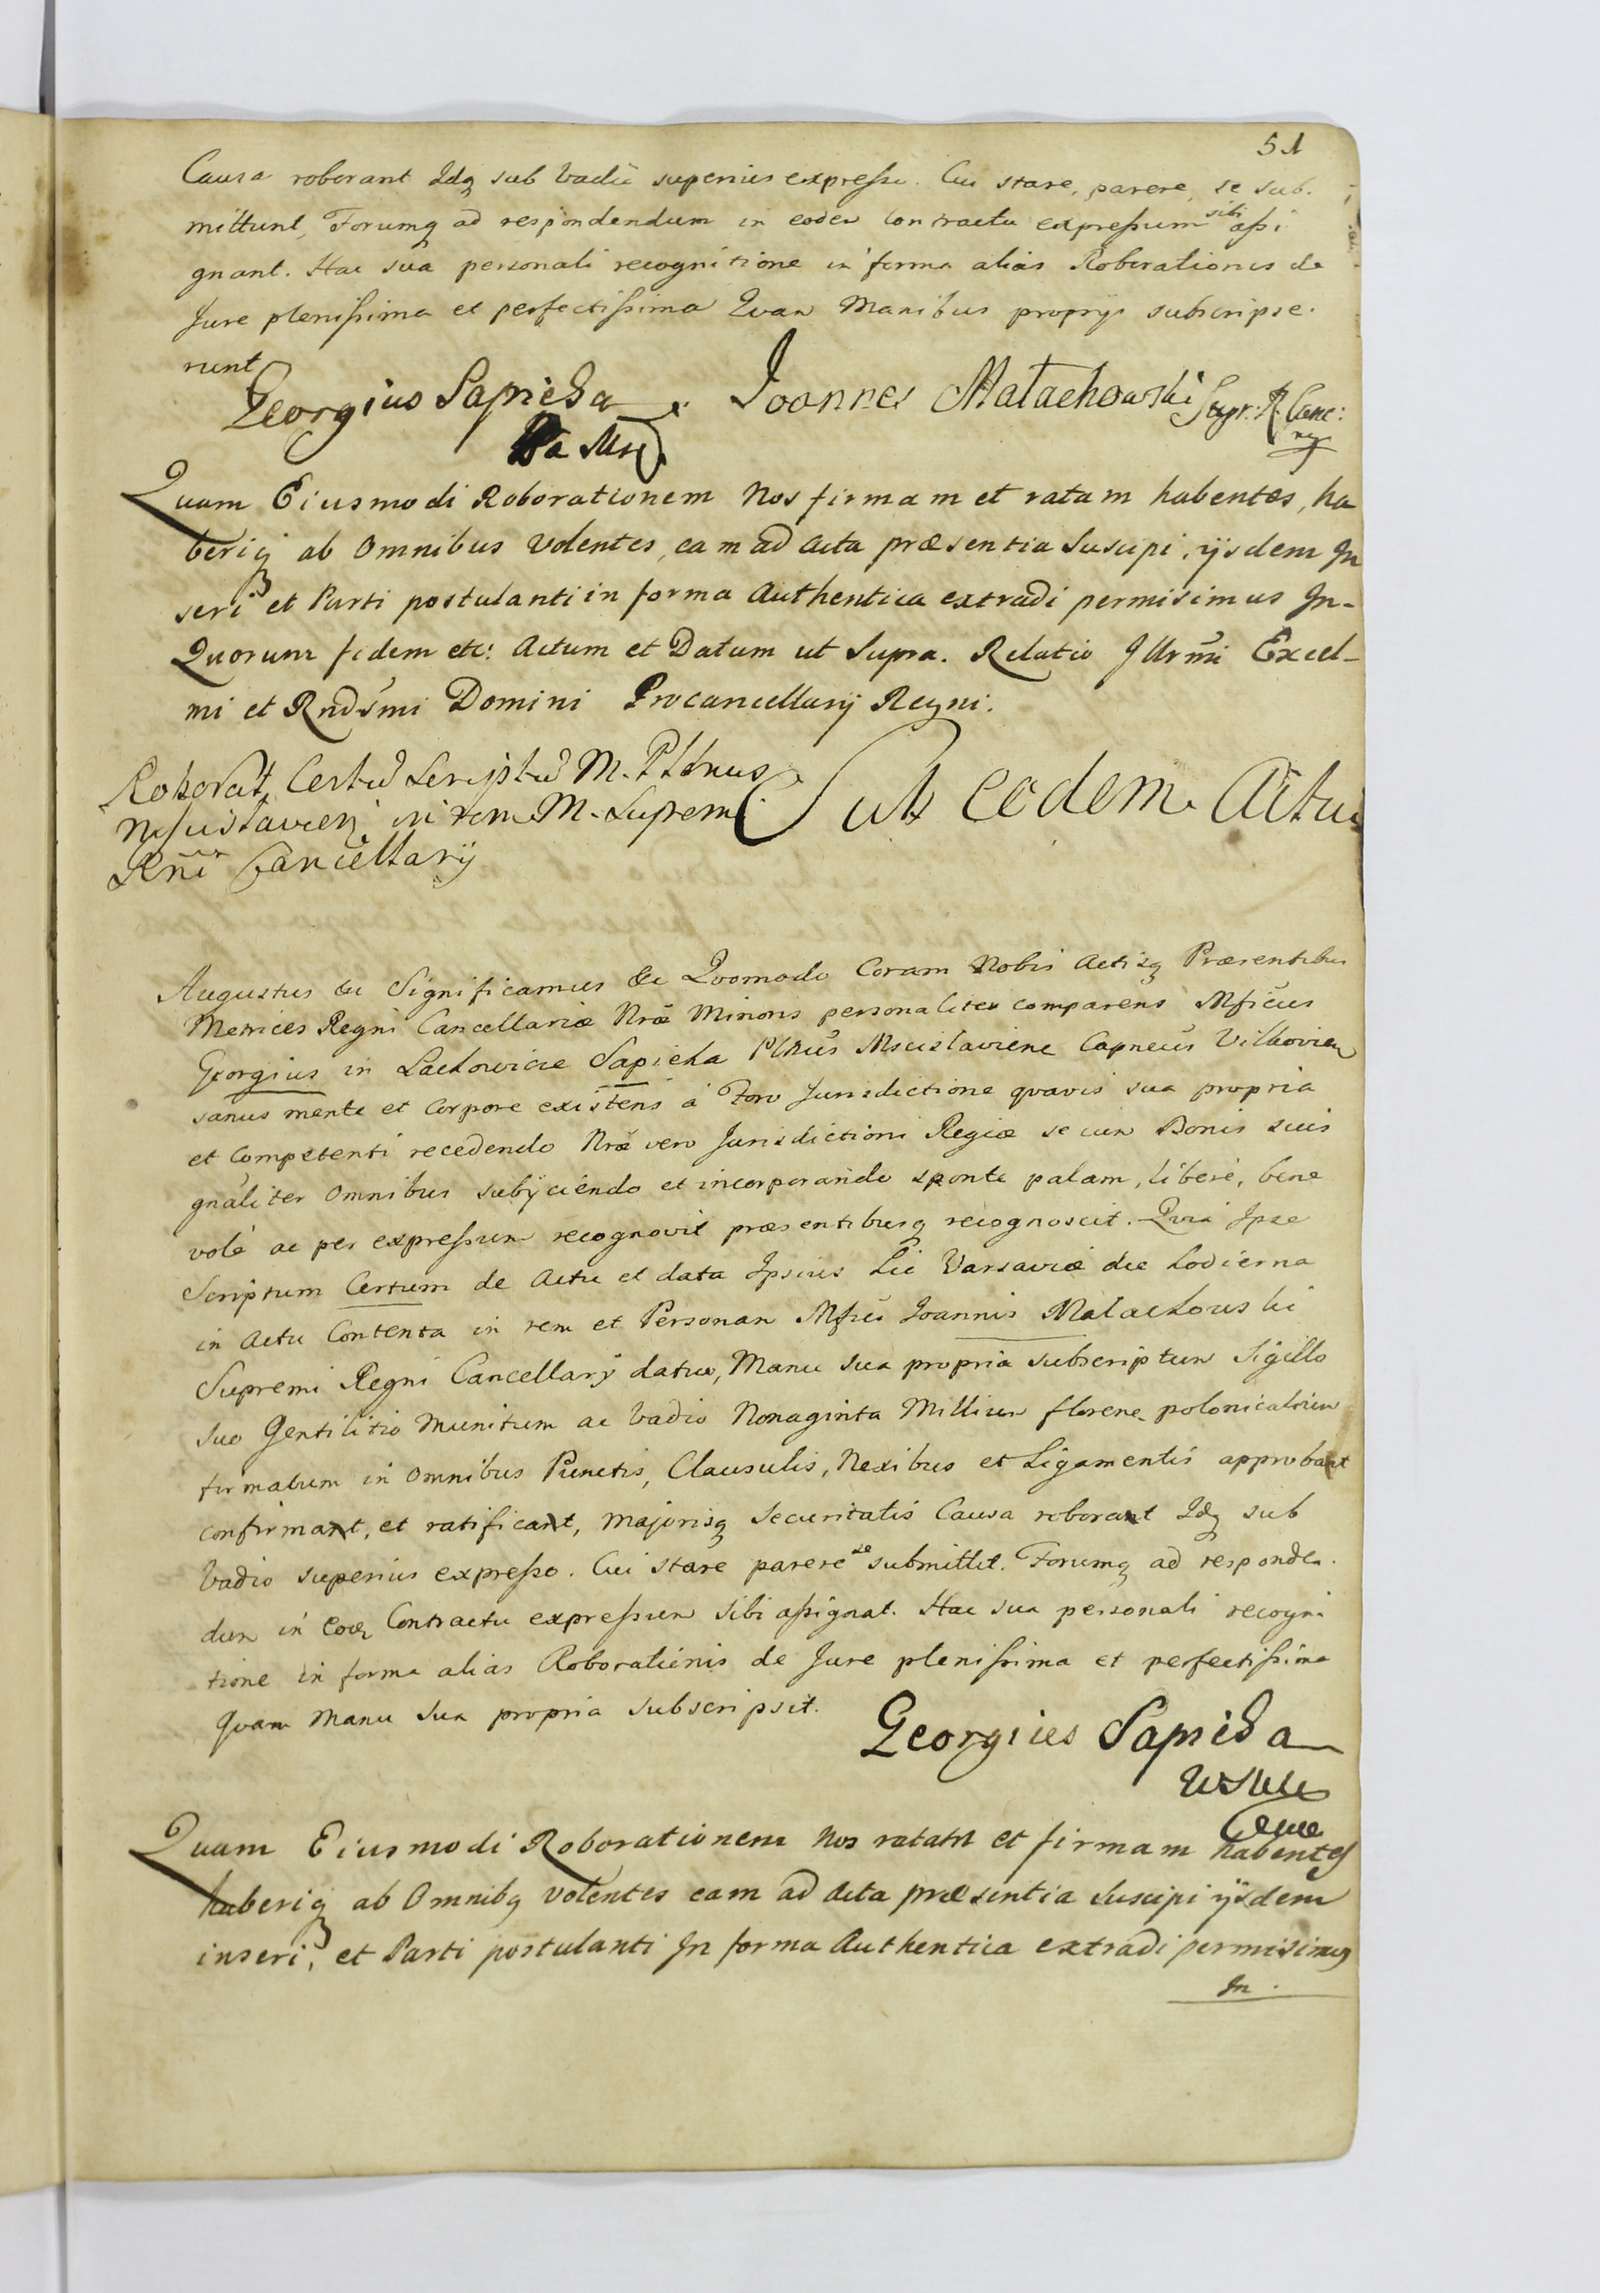 51
Causa roborant Idq sub Vadio superius expresso. Cui stare, parere, se sub.
mittunt, Forumq ad respondendum in eodem Contractu expressum sibi assi
gnant. Hac sua personali recognitione in forma alias Roborationis de
Jure plenissima et perfectissima Quam Manibus proprijs subscripse.
runt
Georgius Sapieha Joannes Małachowski Supr: R. Canc:
Quam Eiusmodi Roborationem Nos firmam et ratam habentes, ha
beriq ab Omnibus Volentes, eam ad Acta præsentia Suscipi, ijsdem In
seri et Parti postulanti in forma Authentica extradi permisimus In-
Quorum fidem etc: Actum et Datum ut Supra. Relatio Illrmi Excel-
mi et Rndsmi Domini Procancellarij Regni.
Roborat Certu Scriptu M. Pltnus
Mscislavien in rem M. Supremi
Rni Cancellarij
Sub eodem Actu
Augustus &c Significamus &c Quomodo Coram Nobis Actisq Præsentibus
Metrices Regni Cancellariæ Nræ Minoris personaliter comparens Mficus
Georgius in Lachowicze Sapieha Pltnus Mscislaviene Capneus Vilkovien
sanus mente et Corpore existens à Foro Jurisdictione quavis sua propria
et Competenti recedendo Nræ vero Jurisdictioni Regiæ se cum Bonis suis
gnaliter Omnibus subijciendo et incorporando sponte palam, liberè, bene
volè ac per expressum recognovit præsentibusq recognoscit. Quia Ipse
Scriptum Certum de Actu et data Ipsius hic Varsaviæ die hodierna
in Actu Contenta in rem et Personam Mfici Joannis Małachowski
Supremi Regni Cancellarij datum, Manu sua propria subscriptum Sigillo
suo Gentilitio Munitum ac Vadio Nonaginta Millium florenor polonicalium
firmatum in Omnibus Punctis, Clausulis, Nexibus et Ligamentis approbant
confirmant, et ratificant, Majorisq Securitatis Causa roborant Idq sub
Vadio superius expresso. Cui stare parere se submittit. Forumq ad responden.
dum in eodem Contractu expressum sibi assignat. Hac sua personali recogni
tione in forma alias Roborationis de Jure plenissima et perfectissima
Quam Manu Sua propria subscripsit.
Georgius Sapieha
Quam Eiusmodi Roborationem Nos ratam et firmam habentes
haberiq ab Omnibq Volentes eam ad Acta præsentia Suscipi ijsdem
inseri, et Parti postulanti In forma Authentica extradi permisimus
In.